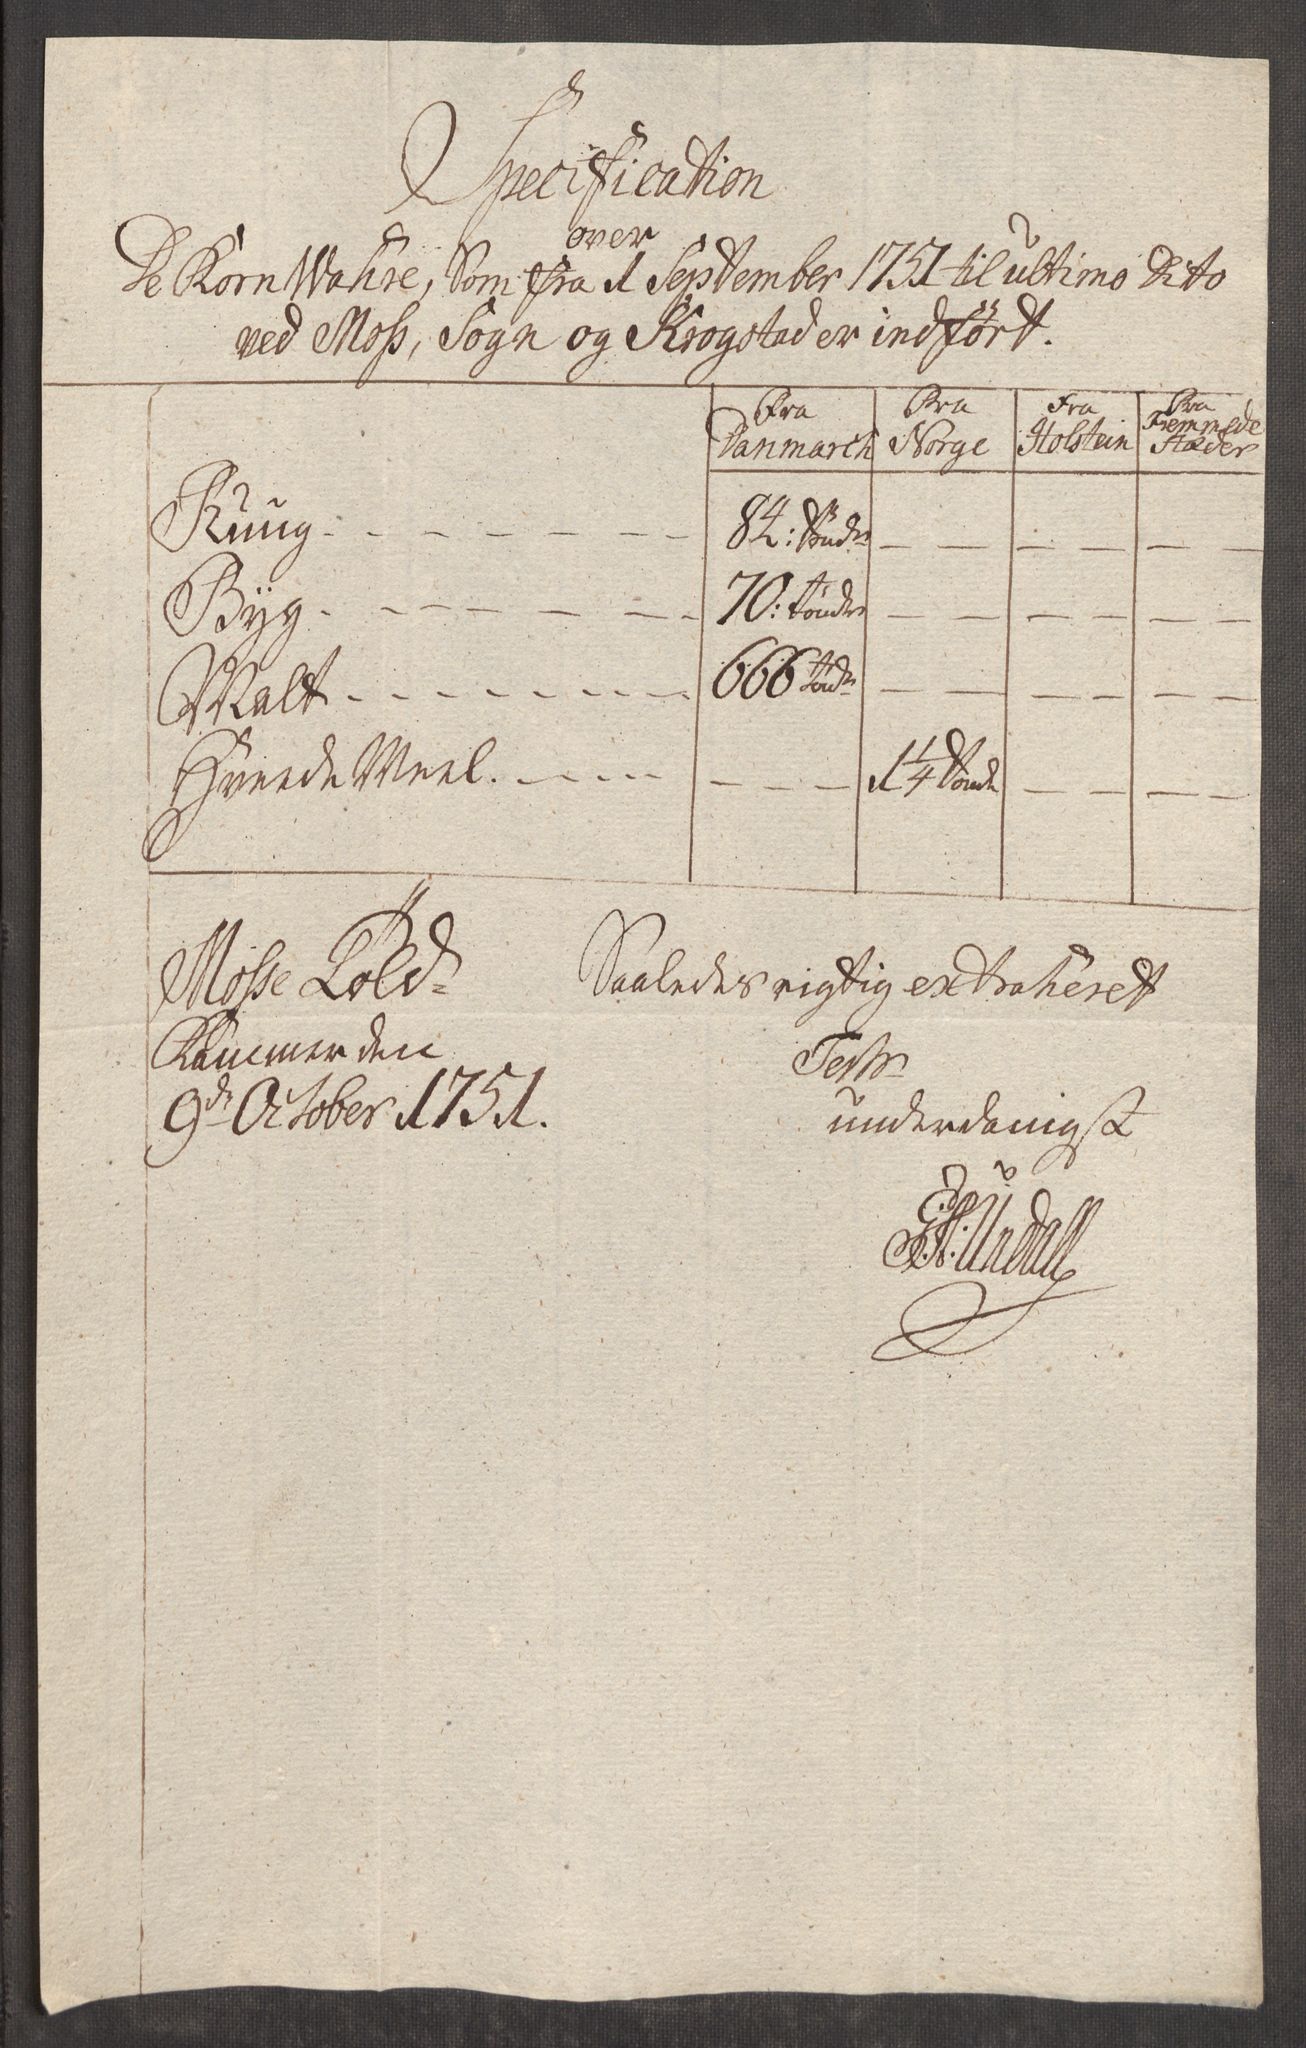 Specification
over
De Korn Wahre, Som fra 1 September 1751 til ultimo dito
ved Moss, Sogn og Krogstad er indført.
Fra Danmarch Fra Norge Fra Holstein Fra Fremmede Stæder
Ruug 84: Tønder
Byg 70: tønder
Malt 666 tønd
Hveede Meel 1 1/4 Tønde
Mosse Told=
Kammer den
9de October 1751.
Saaledes rigtig extraheret
Test
underdanigst
Undall